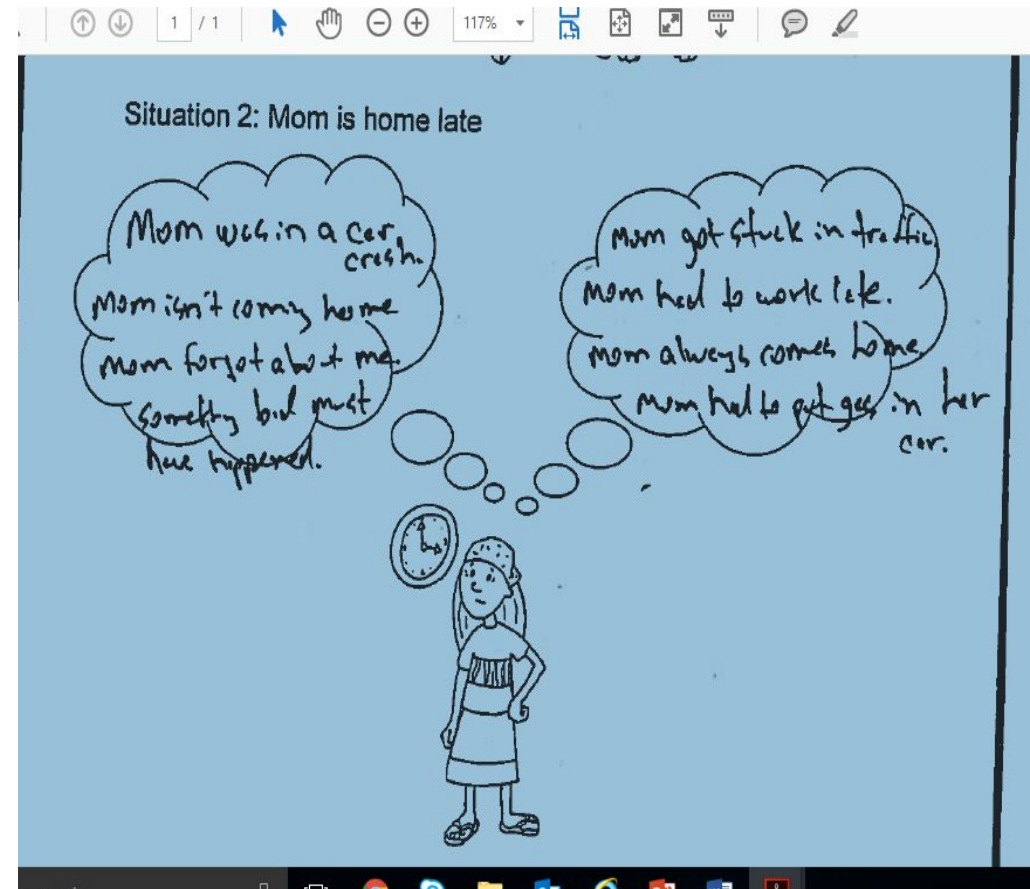 1 / 1
117%
Situation 2: Mom is home late
Mom was in a car
crash.
Mom isn't coming home
Mom forgot about me.
something bad must
have happened.
Mom got stuck in traffic
Mom had to work late.
Mom always comes home
Mom had to get gas in her
car.